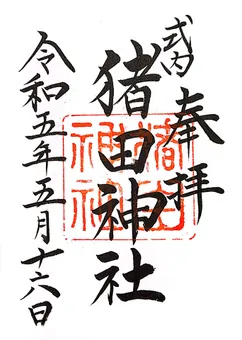 式内
奉拝
猪田神社
令和五年五月十六日
猪田
神社